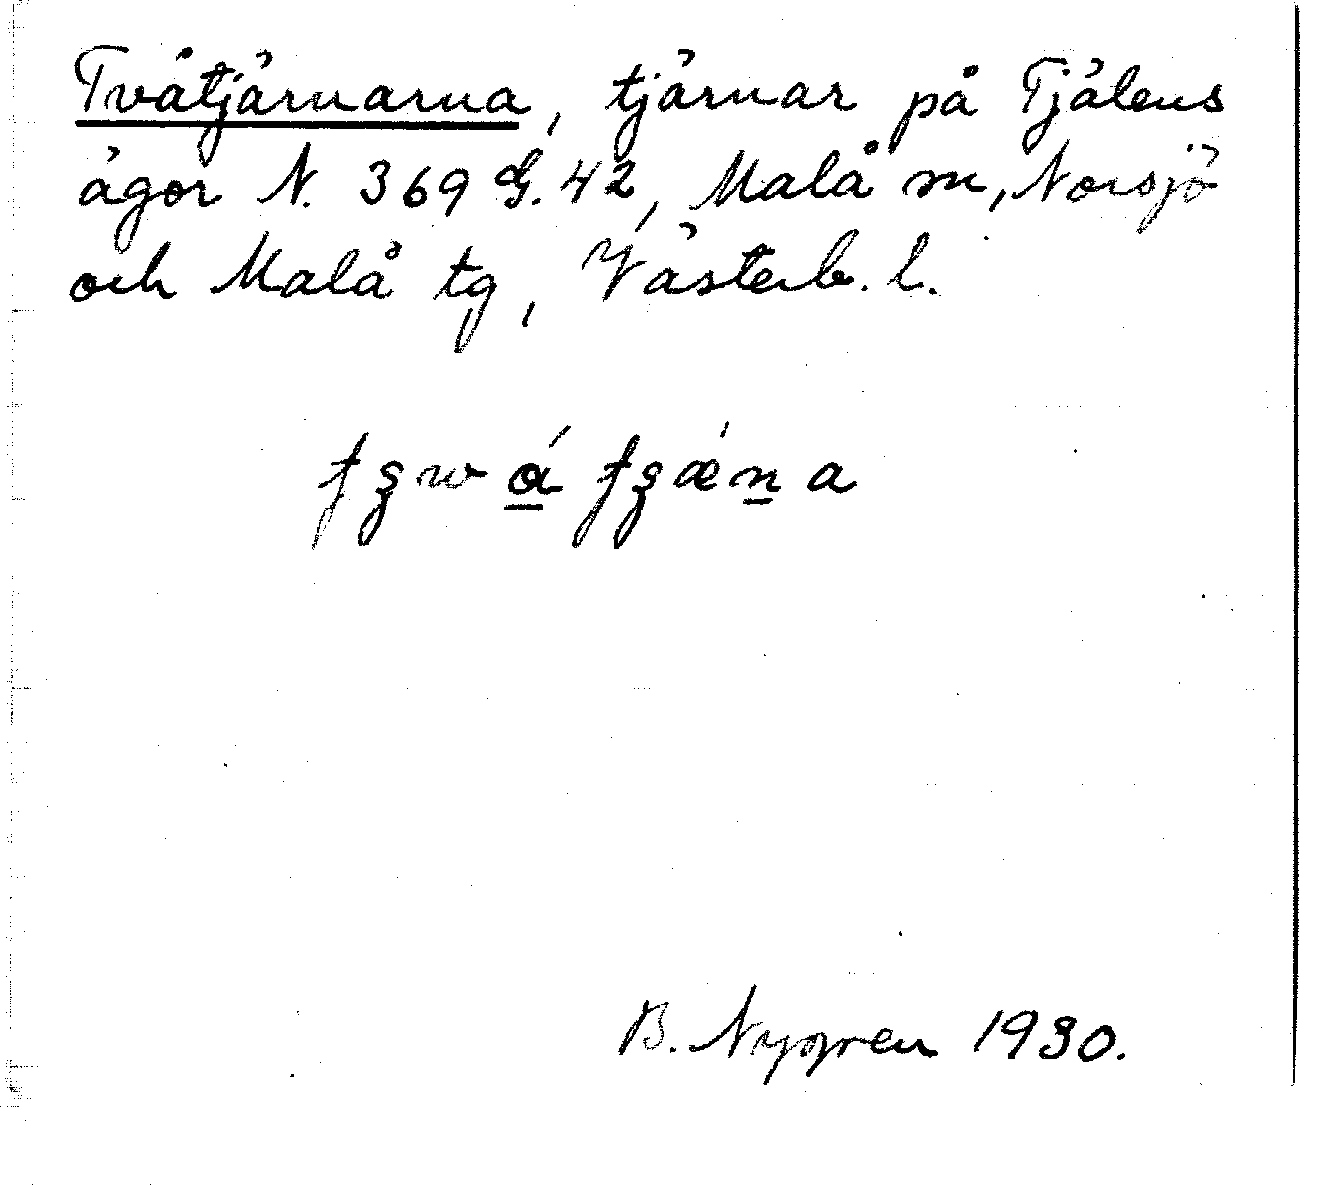 Tvåtjärnarna, tjärnar på Tjälens
ägor N. 369 G. 42, Malå sn, Norsjö
och Malå tg, Västerb. l.
B. Nygren 1930.